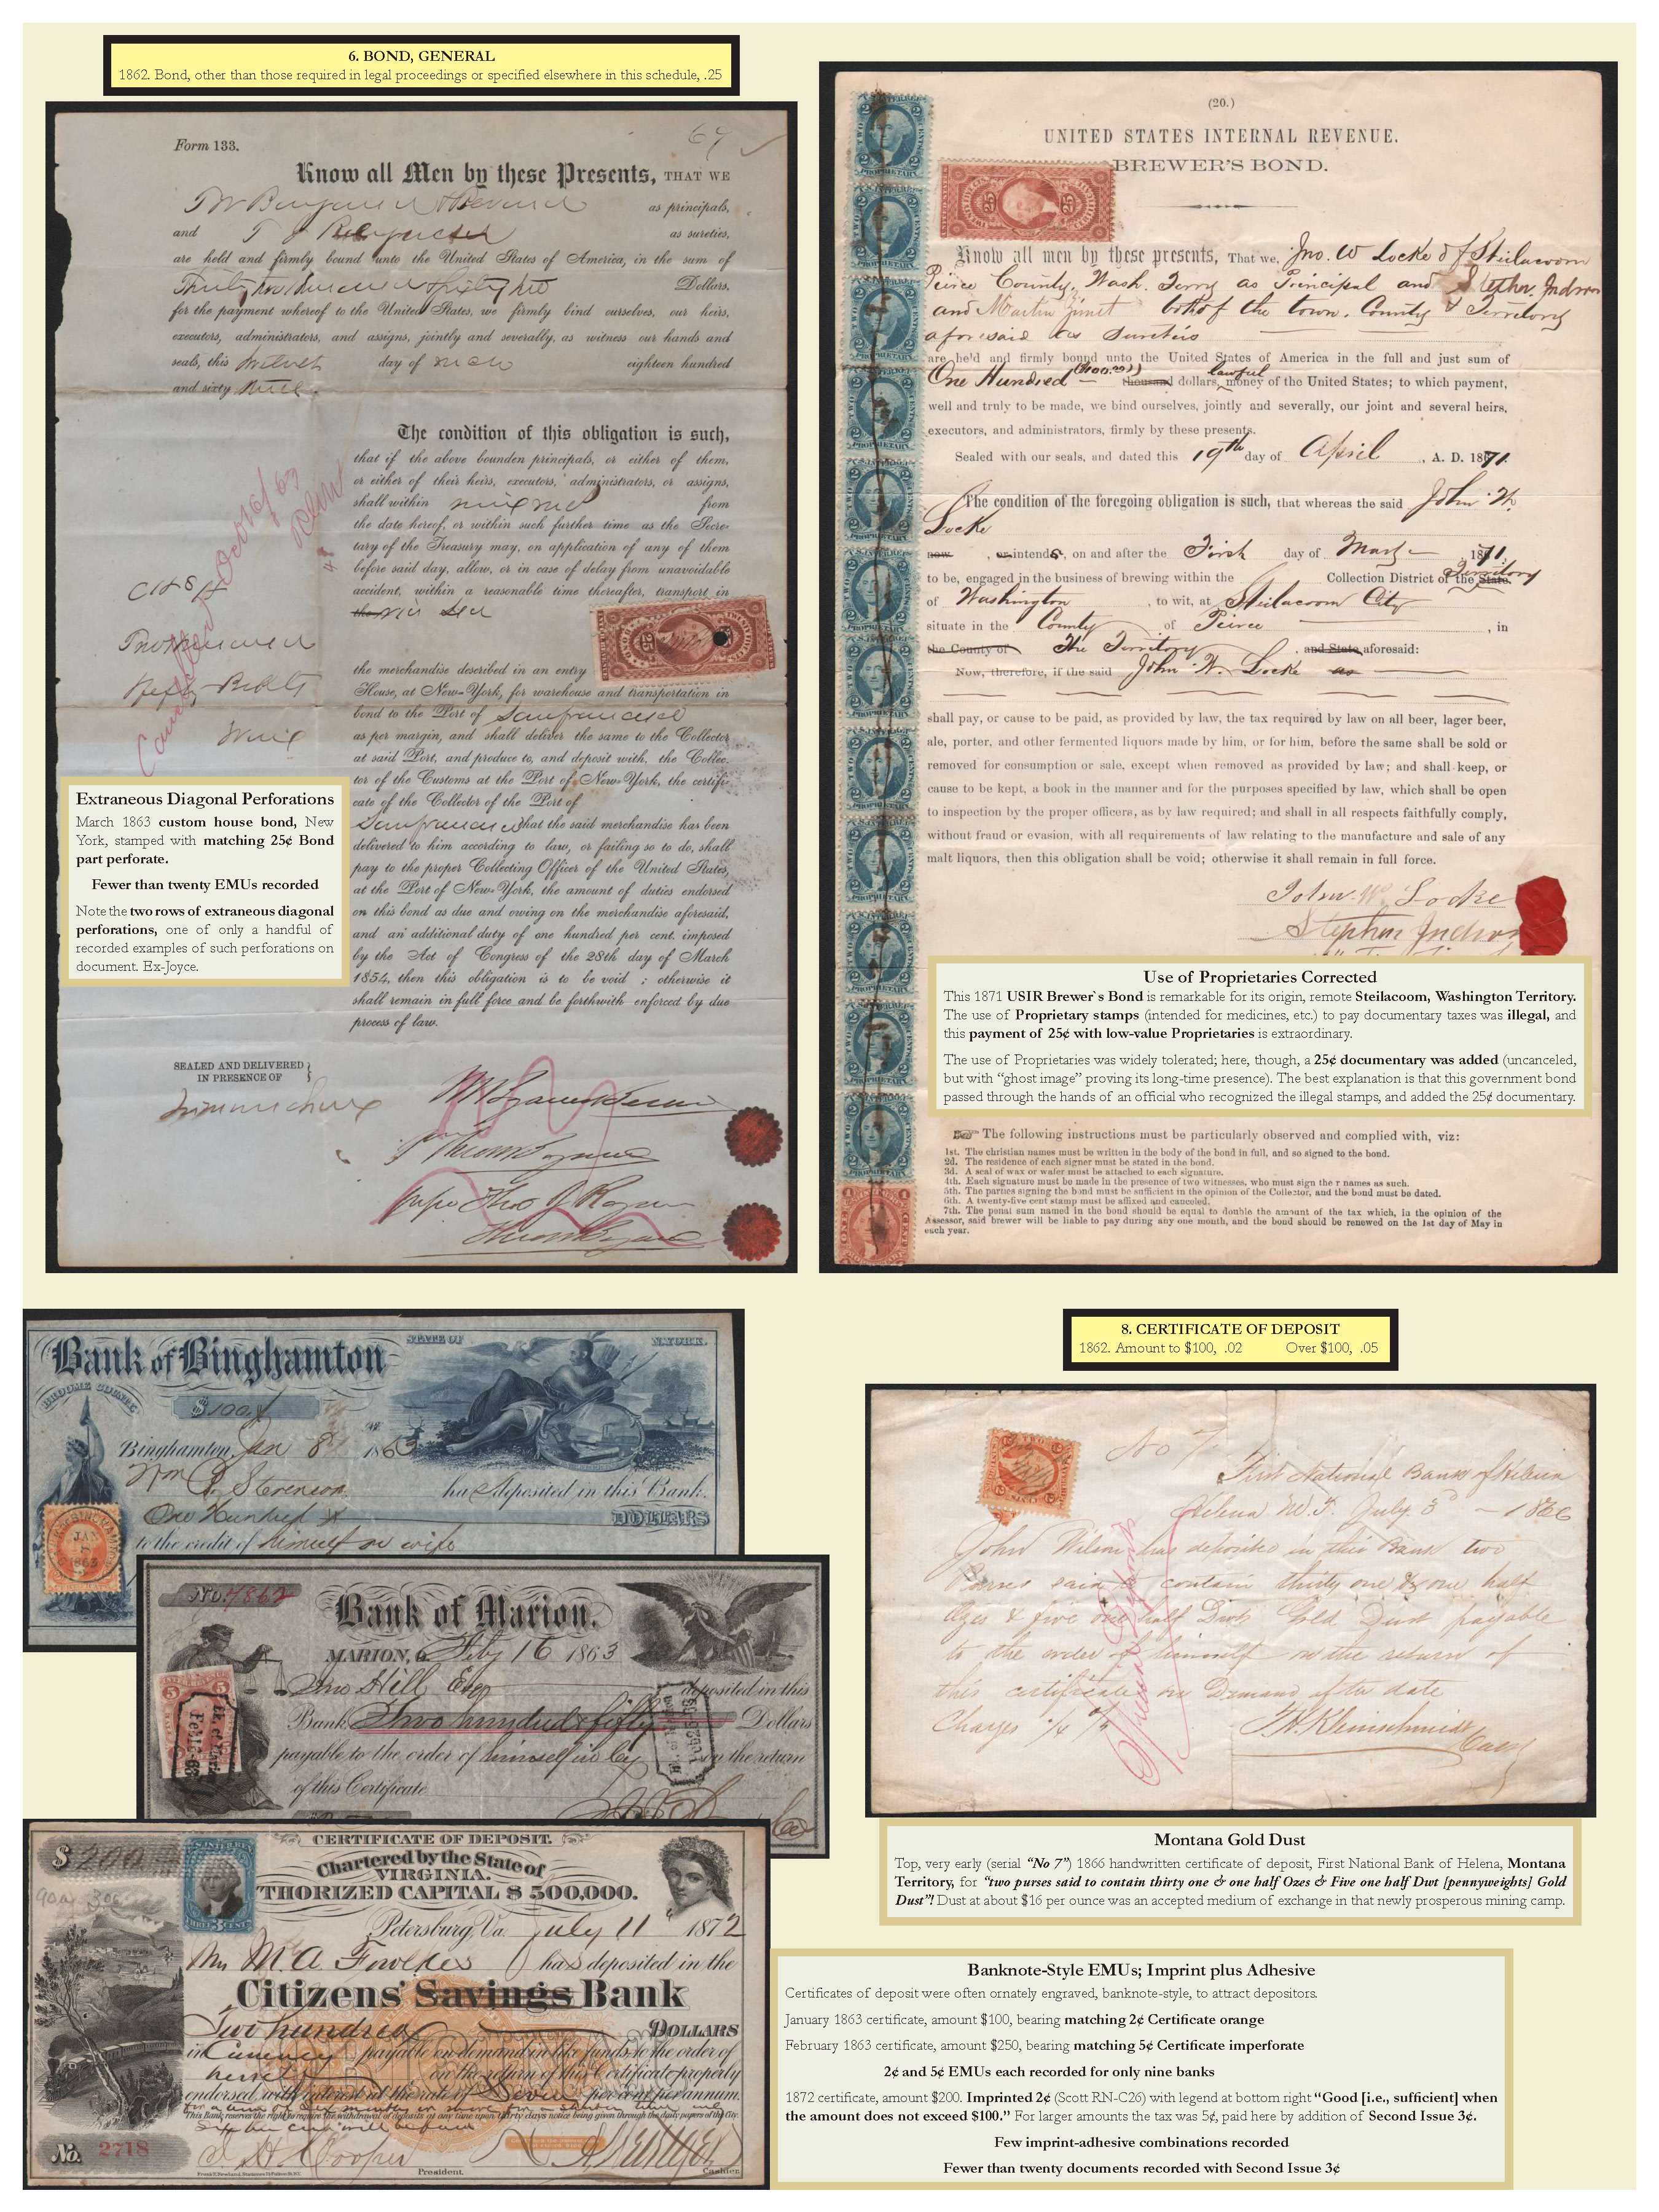 6. BOND, GENERAL
1862. Bond, other than those required in legal proceedings or specified elsewhere in this schedule, .25
Form 133.
Know all Men by these Presents, THAT WE
as principals,
and
as sureties,
are held and firmly bound unto the United States of America, in the sum of
Dollars,
for the payment whereof to the United States, we firmly bind ourselves, our heirs,
executors, administrators, and assigns, jointly and severally, as witness our hands and
seals, this day of eighteen hundred
and sixty
The condition of this obligation is such,
that if the above bounden principals, or either of them,
or either of their heirs, executors, administrators, or assigns,
shall within from
the date hereof, or within such further time as the Secre-
tary of the Treasury may, on application of any of them
before said day, allow, or in case of delay from unavoidable
accident, within a reasonable time thereafter, transport in
the merchandise described in an entry
House, at New-York, for warehouse and transportation in
bond to the Port of Sanfrancisco
as per margin, and shall deliver the same to the Collector
at said Port, and produce to, and deposit with, the Collec-
tor of the Customs at the Port of New-York, the certifi-
cate of the Collector of the Port of
Sanfrancisco that the said merchandise has been
delivered to him according to law, or failing so to do, shall
pay to the proper Collecting Officer of the United States,
at the Port of New-York, the amount of duties endorsed
on this bond as due and owing on the merchandise aforesaid,
and an additional duty of one hundred per cent. imposed
by the Act of Congress of the 28th day of March
1854, then this obligation is to be void ; otherwise it
shall remain in full force and be forthwith enforced by due
process of law.
SEALED AND DELIVERED
IN PRESENCE OF
Extraneous Diagonal Perforations
March 1863 custom house bond, New
York, stamped with matching 25¢ Bond
part perforate.
Fewer than twenty EMUs recorded
Note the two rows of extraneous diagonal
perforations, one of only a handful of
recorded examples of such perforations on
document. Ex-Joyce.
(20.)
UNITED STATES INTERNAL REVENUE.
BREWER'S BOND.
Know all men by these presents, That we, Jno. W Locke of Steilacoom
Pierce County, Wash. Terry as Principal and Stephn. Judson
and Martin both of the town, County & Territory
aforesaid as Sureties
are he'd and firmly bound unto the United States of America in the full and just sum of
One Hundred (100.00)) thousand dollars, lawful money of the United States; to which payment,
well and truly to be made, we bind ourselves, jointly and severally, our joint and several heirs,
executors, and administrators, firmly by these presents.
Sealed with our seals, and dated this 19th day of April , A. D. 1871.
The condition of the foregoing obligation is such, that whereas the said John W.
Locke
now , or intends, on and after the First day of May , 1871.
to be, engaged in the business of brewing within the Collection District of the State Territory
of Washington , to wit, at Steilacoom City
situate in the County of Peirce , in
the County of The Territory , and State aforesaid:
Now, therefore, if the said John W. Locke as
shall pay, or cause to be paid, as provided by law, the tax required by law on all beer, lager beer,
ale, porter, and other fermented liquors made by him, or for him, before the same shall be sold or
removed for consumption or sale, except when removed as provided by law; and shall keep, or
cause to be kept, a book in the manner and for the purposes specified by law, which shall be open
to inspection by the proper officers, as by law required; and shall in all respects faithfully comply,
without fraud or evasion, with all requirements of law relating to the manufacture and sale of any
malt liquors, then this obligation shall be void; otherwise it shall remain in full force.
John W. Locke
Stephen Judson
Use of Proprietaries Corrected
This 1871 USIR Brewer`s Bond is remarkable for its origin, remote Steilacoom, Washington Territory.
The use of Proprietary stamps (intended for medicines, etc.) to pay documentary taxes was illegal, and
this payment of 25¢ with low-value Proprietaries is extraordinary.
The use of Proprietaries was widely tolerated; here, though, a 25¢ documentary was added (uncanceled,
but with “ghost image” proving its long-time presence). The best explanation is that this government bond
passed through the hands of an official who recognized the illegal stamps, and added the 25¢ documentary.
The following instructions must be particularly observed and complied with, viz:
1st. The christian names must be written in the body of the bond in full, and so signed to the bond.
2d. The residence of each signer must be stated in the bond.
3d. A seal of wax or wafer must be attached to each signature.
4th. Each signature must be made in the presence of two witnesses, who must sign the r names as such.
5th. The parties signing the bond must be sufficient in the opinion of the Collector, and the bond must be dated.
6th. A twenty-five cent stamp must be affixed and canceled.
7th. The penal sum named in the bond should be equal to double the amount of the tax which, in the opinion of the
Assessor, said brewer will be liable to pay during any one month, and the bond should be renewed on the 1st day of May in
each year.
STATE OF N.YORK.
Bank of Binghamton
BROOME COUNTY
$100
Binghamton, Jan 8 1863
Wm Stevenson has deposited in this Bank
One Hundred DOLLARS
to the credit of himself or wife
No. 4862
Bank of Marion.
MARION, Feby 16 1863
Jno Hill Esq deposited in this
Bank Two hundred & fifty Dollars
payable to the order of himself on the return
of this Certificate
CERTIFICATE OF DEPOSIT.
$200
Chartered by the State of
VIRGINIA.
THORIZED CAPITAL $ 500,000.
Petersburg, Va. July 11 1872
Mrs M. A. Fowlkes has deposited in the
Citizens' Savings Bank
Two hundred DOLLARS
in Currency payable on demand in like funds to the order of
herself on the return of this Certificate properly
endorsed, with interest at the rate of Seven per cent per annum.
This Bank reserves the right to require the withdrawal of deposits at any time upon thirty days notice being given through the daily papers of the City.
No. 2718
President.
Cashier.
8. CERTIFICATE OF DEPOSIT
1862. Amount to $100, .02 Over $100, .05
No 7
First National Bank of Helena
Helena M.T. July 3d – 1866
John Wilson has deposited in this Bank two
Purses said to contain thirty one & one half
Ozs & five one half Dwts Gold Dust payable
to the order of himself on the return of
this certificate on Demand after date
Charges 1/4 %
T.H. Kleinschmidt
Special Deposit
Montana Gold Dust
Top, very early (serial “No 7”) 1866 handwritten certificate of deposit, First National Bank of Helena, Montana
Territory, for “two purses said to contain thirty one & one half Ozes & Five one half Dwt [pennyweights] Gold
Dust”! Dust at about $16 per ounce was an accepted medium of exchange in that newly prosperous mining camp.
Banknote-Style EMUs; Imprint plus Adhesive
Certificates of deposit were often ornately engraved, banknote-style, to attract depositors.
January 1863 certificate, amount $100, bearing matching 2¢ Certificate orange
February 1863 certificate, amount $250, bearing matching 5¢ Certificate imperforate
2¢ and 5¢ EMUs each recorded for only nine banks
1872 certificate, amount $200. Imprinted 2¢ (Scott RN-C26) with legend at bottom right “Good [i.e., sufficient] when
the amount does not exceed $100.” For larger amounts the tax was 5¢, paid here by addition of Second Issue 3¢.
Few imprint-adhesive combinations recorded
Fewer than twenty documents recorded with Second Issue 3¢